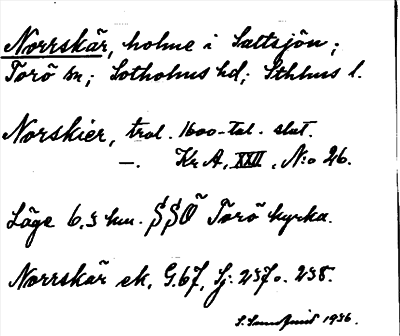 Norrskär, holme i Saltsjön;
Torö sn; Sotholms hd; Sthlms l.
Norskier, trol. 1600-tal. slut.
—. Kr A, XXII, N:o 26.
Läge 6,5 km. SSO Torö kyrka.
Norrskär ek, G.67, Sj. 237 o. 238.
1936.